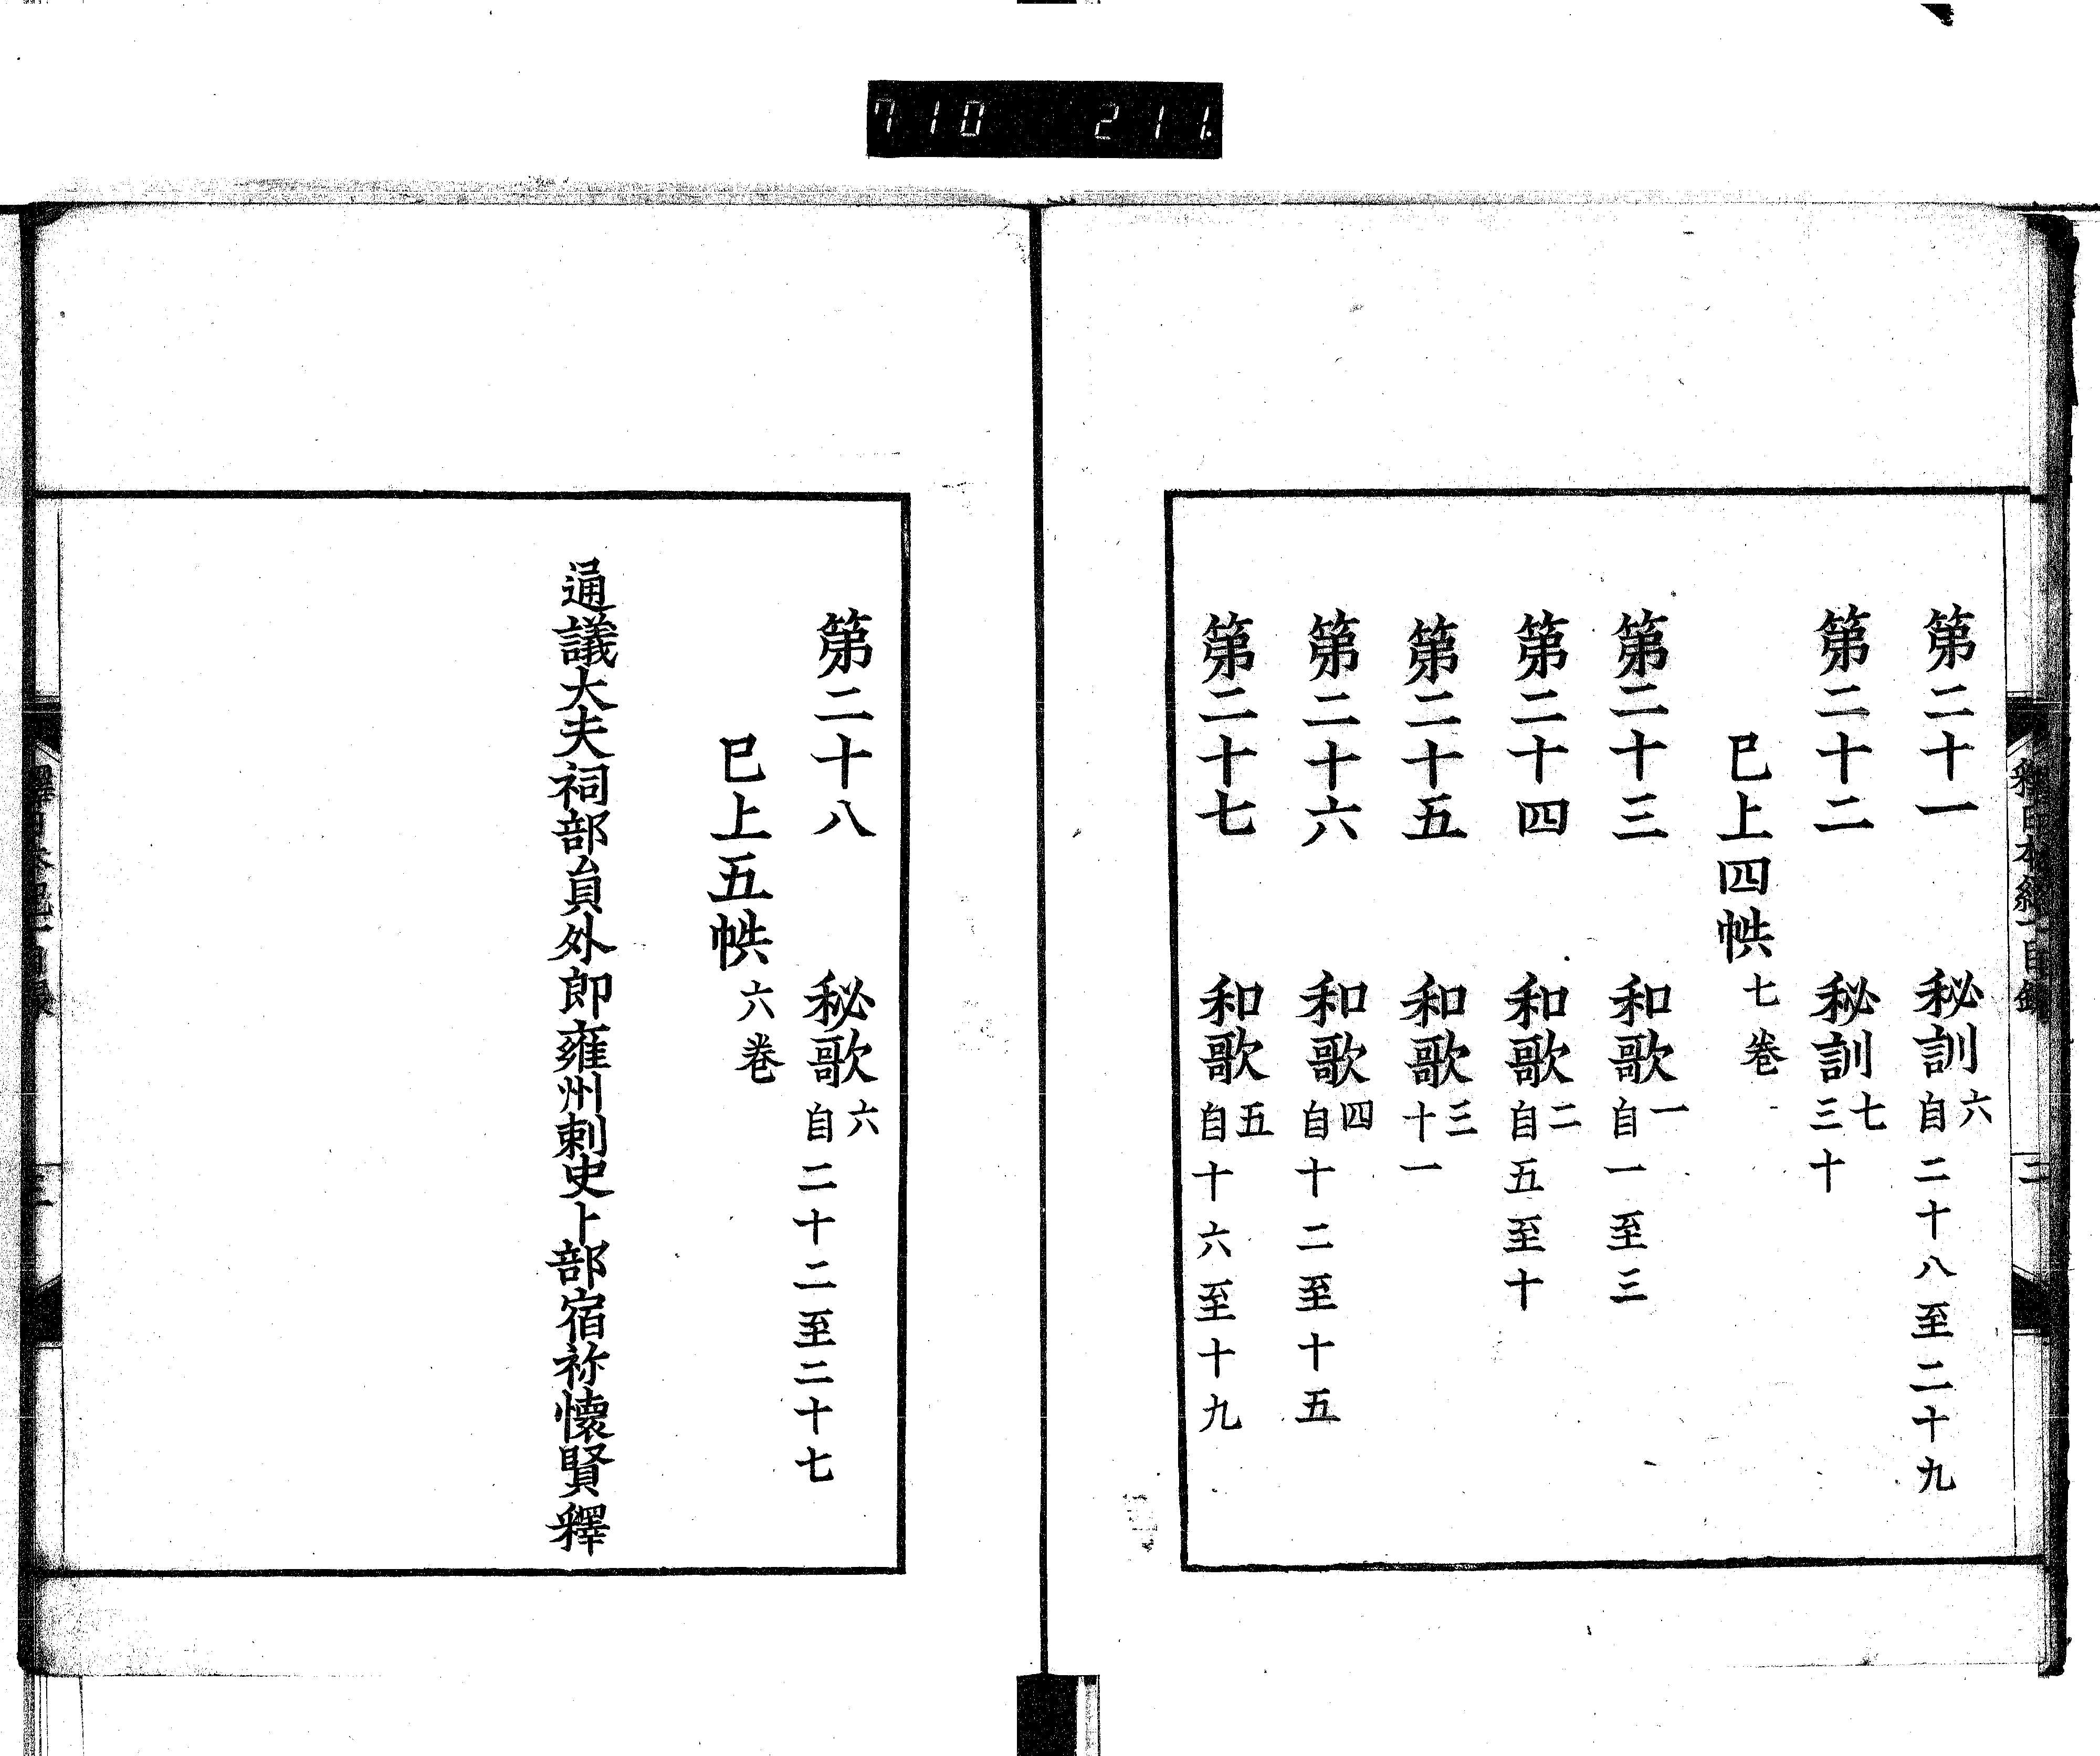 710 211
第二十一 秘訓六自二十八至二十九
第二十二 秘訓七三十
已上四帙七卷
第二十三 和歌一自一至三
第二十四 和歌二自五至十
第二十五 和歌三十一
第二十六 和歌四自十二至十五
第二十七 和歌五自十六至十九
第二十八 秘歌六自二十二至二十七
已上五帙六卷
通議大夫祠部員外郎雍州刺史卜部宿祢懷賢釋